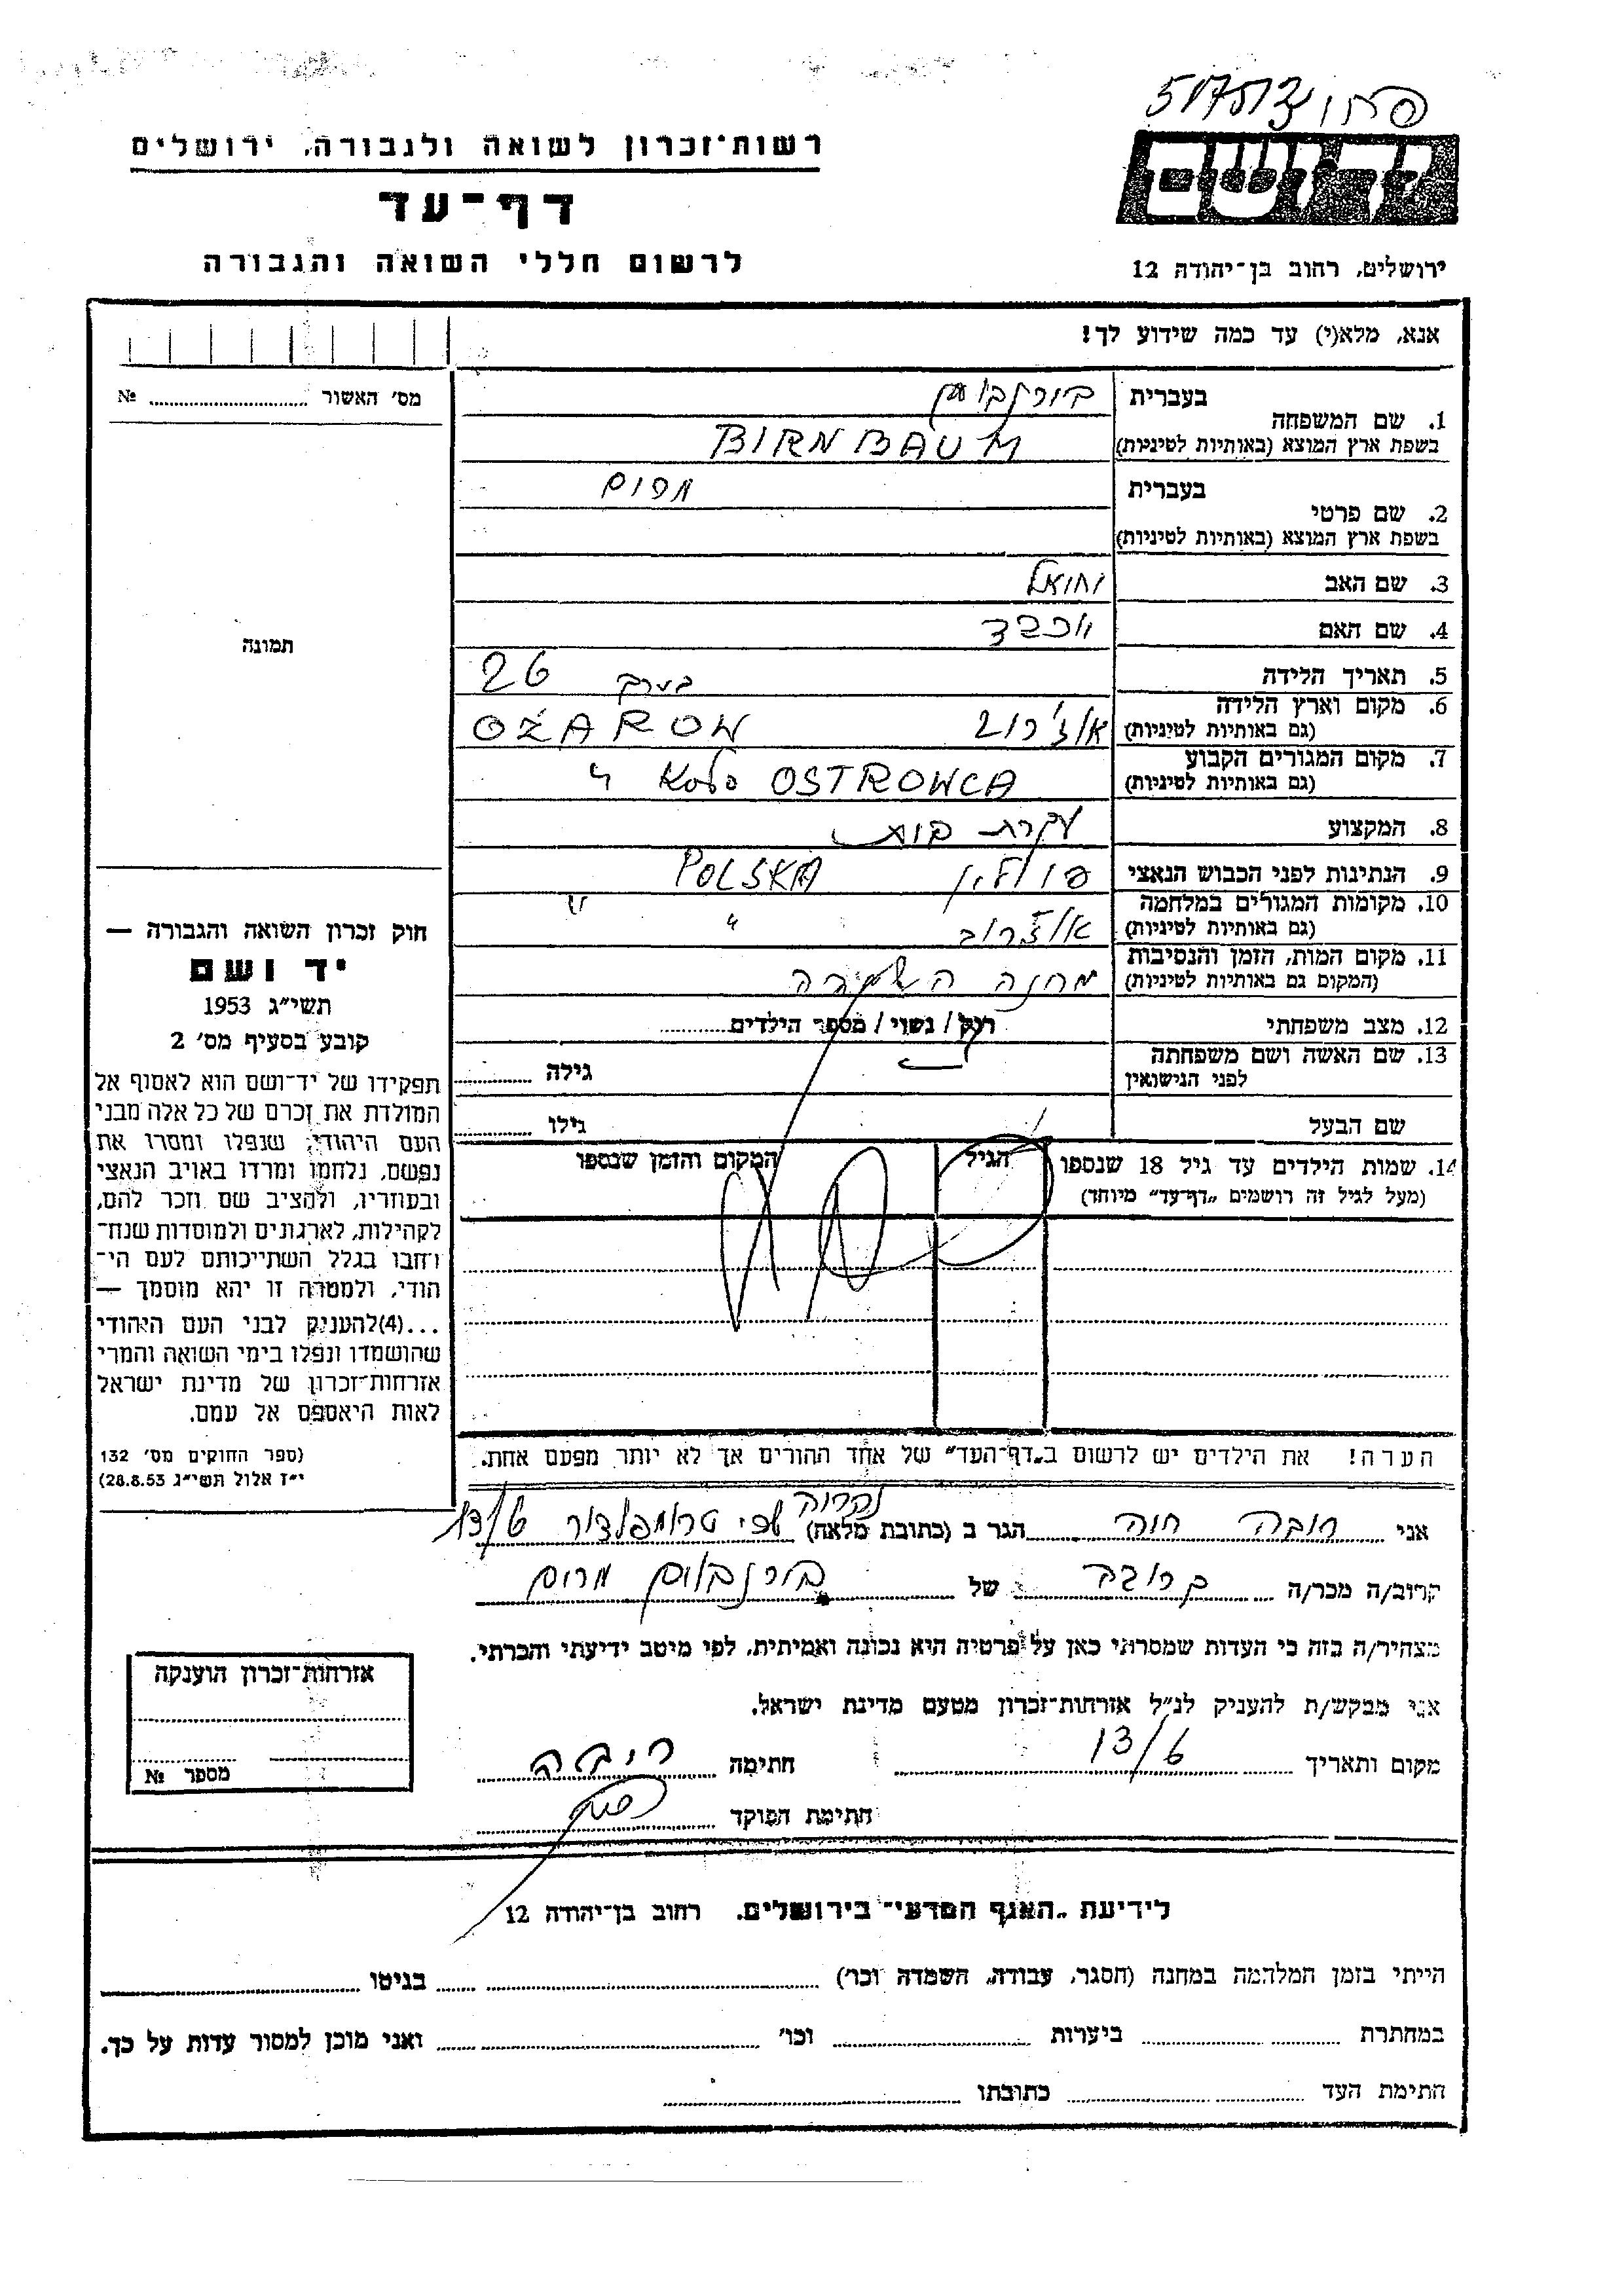 רשות־זכרון לשואה ולגבורה, ירושלים
דף־עד
לרשום חללי השואה והגבורה
ידושם
ירושלים, רחוב בן־יהודה 12
אנא, מלא(י) עד כמה שידוע לך!
מס' האשור № ........
1. שם המשפחה
בעברית בירנבוים
בשפת ארץ המוצא (באותיות לטיניות) BIRNBAUM
2. שם פרטי
בעברית
בשפת ארץ המוצא (באותיות לטיניות)
3. שם האב
4. שם האם יוכבד
5. תאריך הלידה בערך 26
6. מקום וארץ הלידה
(גם באותיות לטיניות) אוז'רוב OŻAROW
7. מקום המגורים הקבוע
(גם באותיות לטיניות) OSTROWCA קולו "
8. המקצוע עקרת בית
9. הנתינות לפני הכבוש הנאצי פולין POLSKA
10. מקומות המגורים במלחמה
(גם באותיות לטיניות) אוז'רוב " "
11. מקום המות, הזמן והנסיבות
(המקום גם באותיות לטיניות) מחנה השמדה
12. מצב משפחתי רוק / נשוי / מספר הילדים........
13. שם האשה ושם משפחתה
לפני הנישואין גילה ........
שם הבעל גילו ........
14. שמות הילדים עד גיל 18 שנספו הגיל המקום והזמן שנספו
(מעל לגיל זה רושמים „דף־עד” מיוחד)
הערה! את הילדים יש לרשום ב„דף־העד” של אחד ההורים אך לא יותר מפעם אחת.
תמונה
חוק זכרון השואה והגבורה —
יד ושם
תשי״ג 1953
קובע בסעיף מס' 2
תפקידו של יד־ושם הוא לאסוף אל
המולדת את זכרם של כל אלה מבני
העם היהודי, שנפלו ומסרו את
נפשם, נלחמו ומרדו באויב הנאצי
ובעוזריו, ולהציב שם וזכר להם,
לקהילות, לארגונים ולמוסדות שנח־
רחבו בגלל השתייכותם לעם הי־
הודי, ולמטרה זו יהא מוסמך —
...(4)להעניק לבני העם היהודי
שהושמדו ונפלו בימי השואה והמרי
אזרחות־זכרון של מדינת ישראל
לאות היאספם אל עמם.
(ספר החוקים מס' 132
י״ז אלול תשי״ג 28.8.53)
אני חוה הגר ב (כתובת מלאה) טרומפלדור 13/6
קרוב/ה מכר/ה של בירנבוים מרים
מצהיר/ה בזה כי העדות שמסרתי כאן על פרטיה היא נכונה ואמיתית, לפי מיטב ידיעתי והכרתי.
אני מבקש/ת להעניק לנ״ל אזרחות־זכרון מטעם מדינת ישראל.
מקום ותאריך 13/6 חתימה
חתימת הפוקד
אזרחות־זכרון הוענקה
מספר №
לידיעת „האגף המדעי” בירושלים, רחוב בן־יהודה 12
הייתי בזמן המלחמה במחנה (הסגר, עבודה, השמדה וכו') ........ בגיטו ........
במחתרת ........ ביערות ........ וכו' ........ ואני מוכן למסור עדות על כך.
חתימת העד ........ כתובתו ........